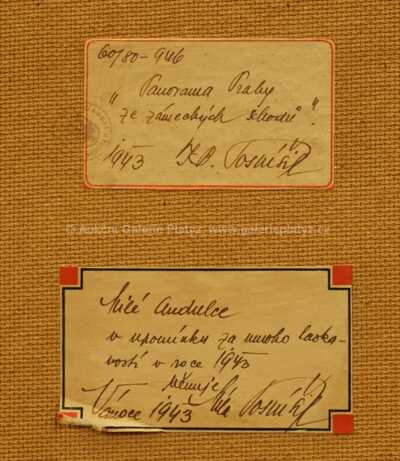 60/80-946
„Panorama Prahy
ze zámeckých schodů“.
1943
© Aukční Galerie Platýz www.galerieplatyz.cz
Milé Andulce
v upomínku za mnoho laska-
vostí v roce 1943
věnuje
Vánoce 1943